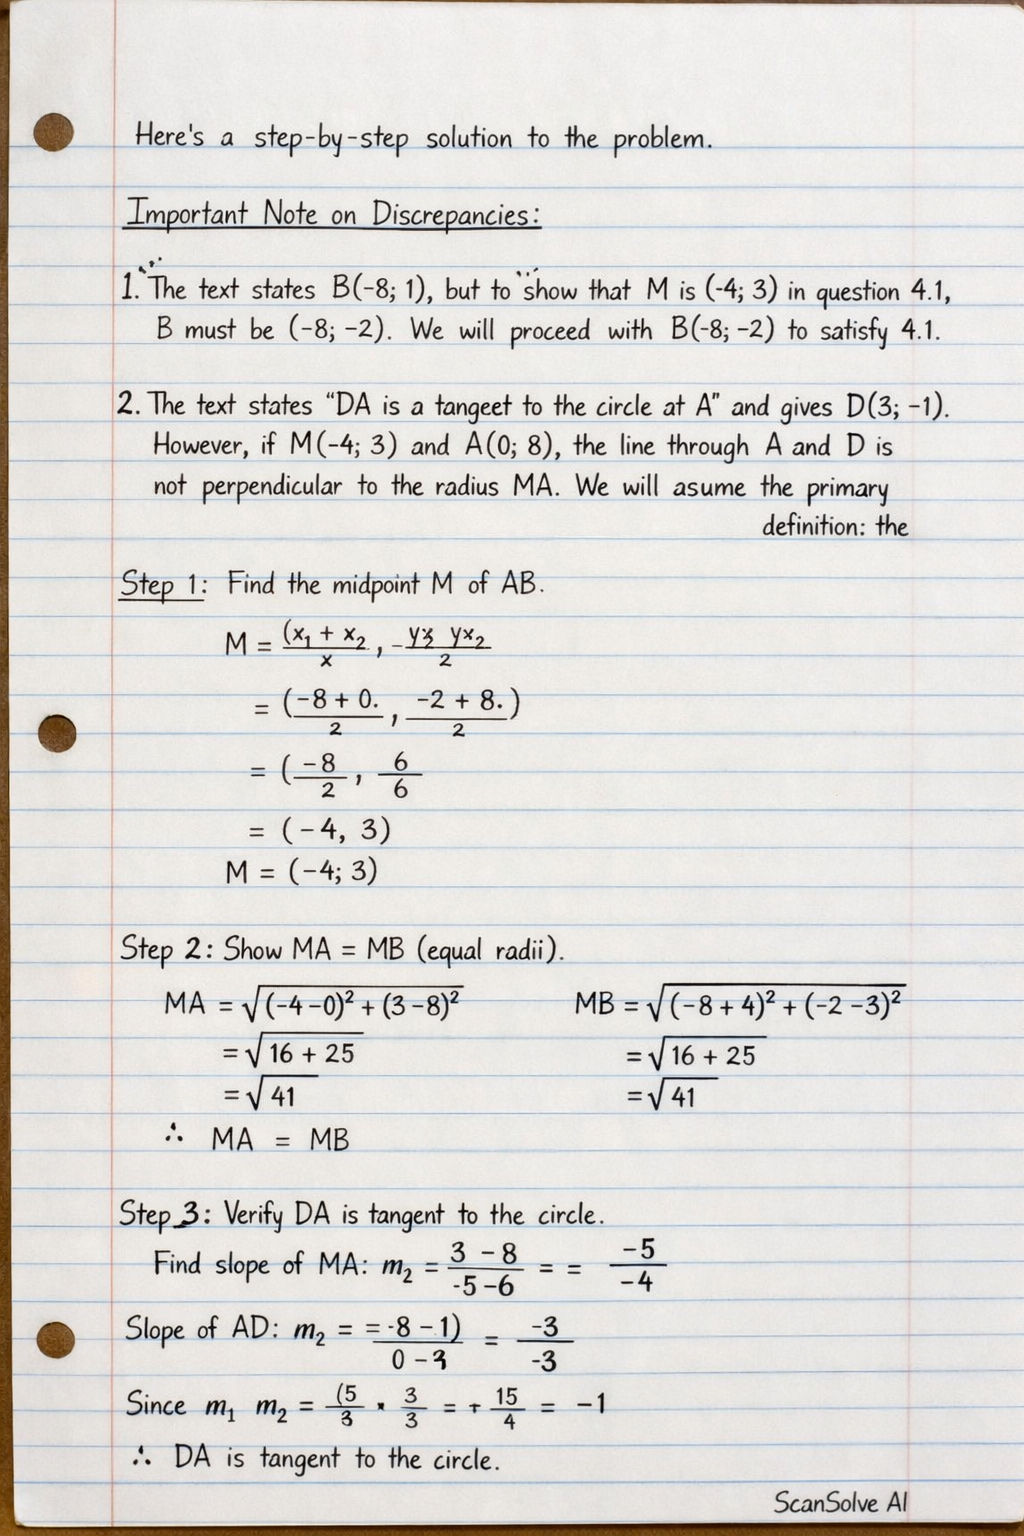 Here's a step-by-step solution to the problem.
Important Note on Discrepancies:
1. The text states B(-8; 1), but to show that M is (-4; 3) in question 4.1,
B must be (-8; -2). We will proceed with B(-8; -2) to satisfy 4.1.
2. The text states "DA is a tangeet to the circle at A" and gives D(3; -1).
However, if M(-4; 3) and A(0; 8), the line through A and D is
not perpendicular to the radius MA. We will asume the primary
definition: the
Step 1: Find the midpoint M of AB.
M = (x₁ + x₂ / x, - y3 yx₂ / 2
= (-8 + 0. / 2, -2 + 8. / 2)
= (-8 / 2, 6 / 6
= (-4, 3)
M = (-4; 3)
Step 2: Show MA = MB (equal radii).
MA = √(-4 - 0)² + (3 - 8)² MB = √(-8 + 4)² + (-2 - 3)²
= √16 + 25 = √16 + 25
= √41 = √41
∴ MA = MB
Step 3: Verify DA is tangent to the circle.
Find slope of MA: m₂ = 3 - 8 / -5 - 6 = = -5 / -4
Slope of AD: m₂ = = -8 - 1) / 0 - 3 = -3 / -3
Since m₁ m₂ = (5 / 3 · 3 / 3 = + 15 / 4 = -1
∴ DA is tangent to the circle.
ScanSolve AI